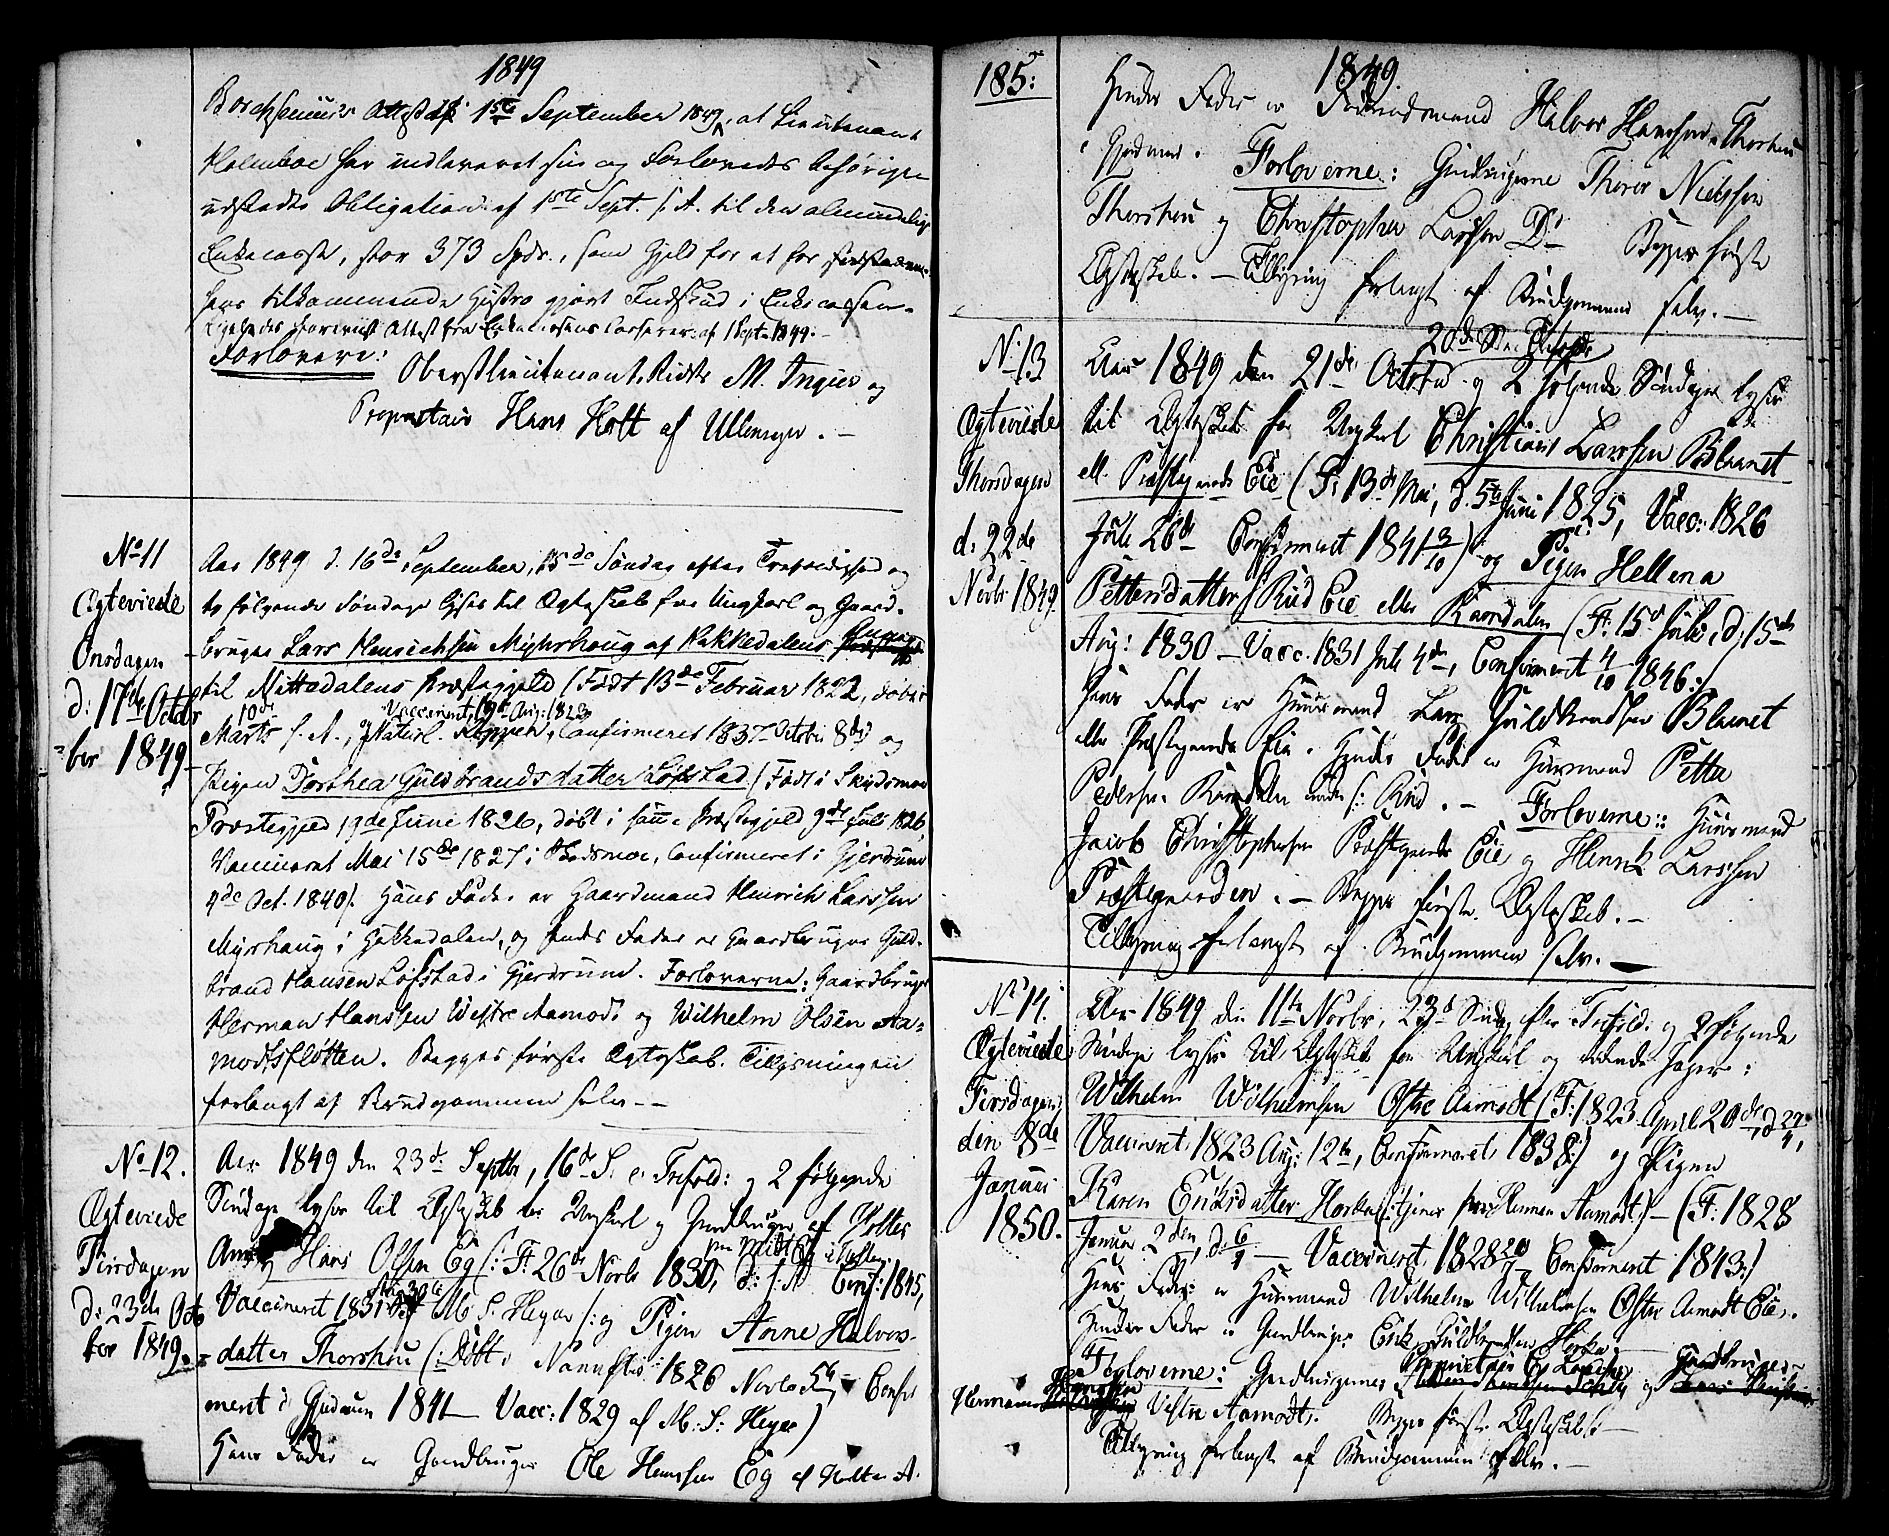 1849
Attest af 1ste September 1849, at Lieutenant
Holmboe har indleveret sin og Forlovedes behørigen
udstedte Obligation af 1ste Sept. s. A. til den almindelige
Enkecasse, stor 373 Spdr., som Gjeld for at for
hans tilkommende Hustro gjort Indskud i Enkecassen.
Attest fra Enkecassens Casserer af 1 Sept. 1849.
Forlovere: Oberstlieutenant, Ridr M. Ingier og
Proprietair Hans Holt af Ullensager.
No 11
Ægteviede
Onsdagen
d: 17de Octo
ber 1849
Aar 1849 d. 16de September, 15de Søndag efter Trefoldighed og
to følgende Søndage lyses til Ægteskab for Ungkarl og Gaard-
bruger Lars Henrichsen Myhrhoug af Hakkedalens
til Nittedalens Præstegjeld (Født 13de Februar 1822, døbt
10de Marts s. A., Vaccineret 19de Aug: 1823
Naturl. Kopper, Confirmeret 1837 October 8de) og
Pigen Dorthea Guldbrandsdatter Løfstad (Født i Skydsmoe
Præstegjeld 19de Juni 1826, døbt i samme Præstegjeld 9de Juli 1826,
Vaccineret Mai 15de 1827 i Skedsmoe, Confirmeret i Gjerdrum
4de Oct. 1840). Hans Fader er Gaardmand Henrich Larssen
Myrhaug i Hakkedalen, og hendes Fader er Gaardbruger Guld-
brand Hansen Løfstad i Gjerdrum. Forloverne: Gaardbruger
Herman Hanssen Westre Aamodt og Wilhelm Olsen Aa-
modtsfløtten. Begges første Ægteskab. Tillysningen
forlangt af Brudgommen selv.
No 12.
Ægteviede
Tirsdagen
d: 23de Octo
ber 1849.
Aar 1849 den 23de Septbr, 16de S. e. Trefold: og 2 følgende
Søndage lyses til Ægteskab for Ungkarl og Gaardbruger af Holter
Hans Olsen Eg (: F: 26de Novbr 1830, d: s: A Conf: 1845,
Vaccineret 1831 af M. S. Heyer :) og Pigen Anne Halvors-
datter Thorshou (: Døbt i Nannestad 1826 Novbr 5te Confir
meret i Gjerdrum 1841 Vacc: 1829 af M: S: Heyer)
Hans Fader er Gaardbruger Ole Hanssen Eg af Holter A.
185:
1849
Hendes Fader er Halvor Hanssen Thorshou
i Gjerdrum. Forloverne: Gaardbrugerne Thorer Nielssen
Thorshou og Christopher Larssen Do Begges første
Ægteskab. Tillysning forlangt af Brudgommen selv.
No 13
Ægteviede
Thorsdagen
d: 22de
Novbr 1849.
Aar 1849 den 21de October og 2 følgende Søndage lyses
til Ægteskab for Ungkarl Christian Larssen Blanet
ell. Præstegaards Eie (F: 13de Mai, d. 5te Juni 1825, Vacc: 1826
Juli 26de Confirmeret 1841 3/10) og Pigen Hellena
Pettersdatter Rud Eie eller Ramdalen (F: 15de Juli, d: 15de
Aug: 1830 Vacc. 1831 Juli 4de, Confirmeret 4/10 1846:)
Hans Fader er Huusmand Lars Guldbrandsen Blanet
eller Præstegaards Eie. Hendes Fader er Huusmand Petter
Pedersen Ramdalen under Rud. Forloverne: Huusmand
Jacob Christophersen Præstgaards Eie og Henrik Larssen
Præstegaarden. Begges første Ægteskab.
Tillysning forlangt af Brudgommen selv.
No 14.
Ægteviede
Tirsdagen
den 8de
Januar
1850.
Aar 1849 den 11te Novbr, 23de Søndag efter Trefold: og 2 følgende
Søndage lyses til Ægteskab for Ungkarl og Jæger:
Wilhelm Wilhelmsen Østre Aamodt (F: 1823 April 20de, d 27/4,
Vaccineret 1823 Aug: 12te, Confirmeret 1838:) og Pigen
Karen Eriksdatter Horke (: tjener hos Herman Aamodt) (F: 1828
Januar 2den, d 6/1 Vaccineret 1828 Confirmeret 1843:)
Hans Fader er Huusmand Wilhelm Wilhelmsen Østre Aamodt Eie.
Hendes Fader er Gaardbruger Erik Guldbrandsen Horke
Forloverne: Gaardbrugerne Gaardbruger
Herman Vestre Aamodt. Begges første Ægteskab.
Tillysning forlangt af Brudgommen selv.